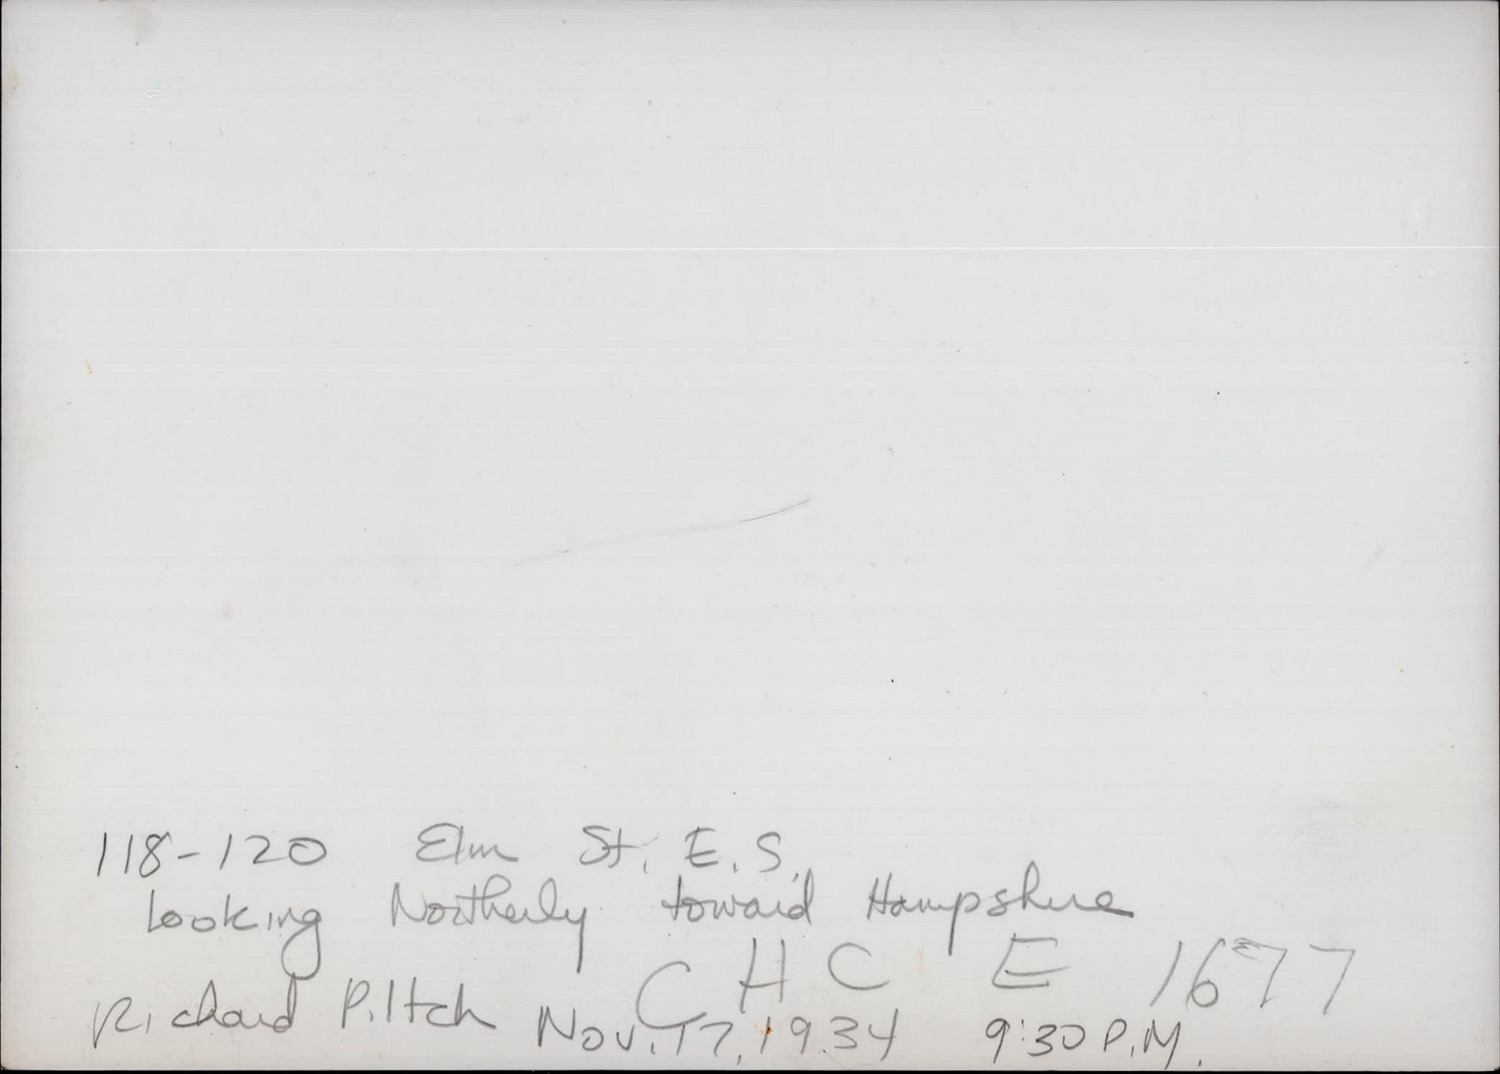 118-120 Elm St. E.S.
looking Northerly toward Hampshire
C H C E 1677
Richard Piltch Nov. 17, 1934 9:30 P.M.